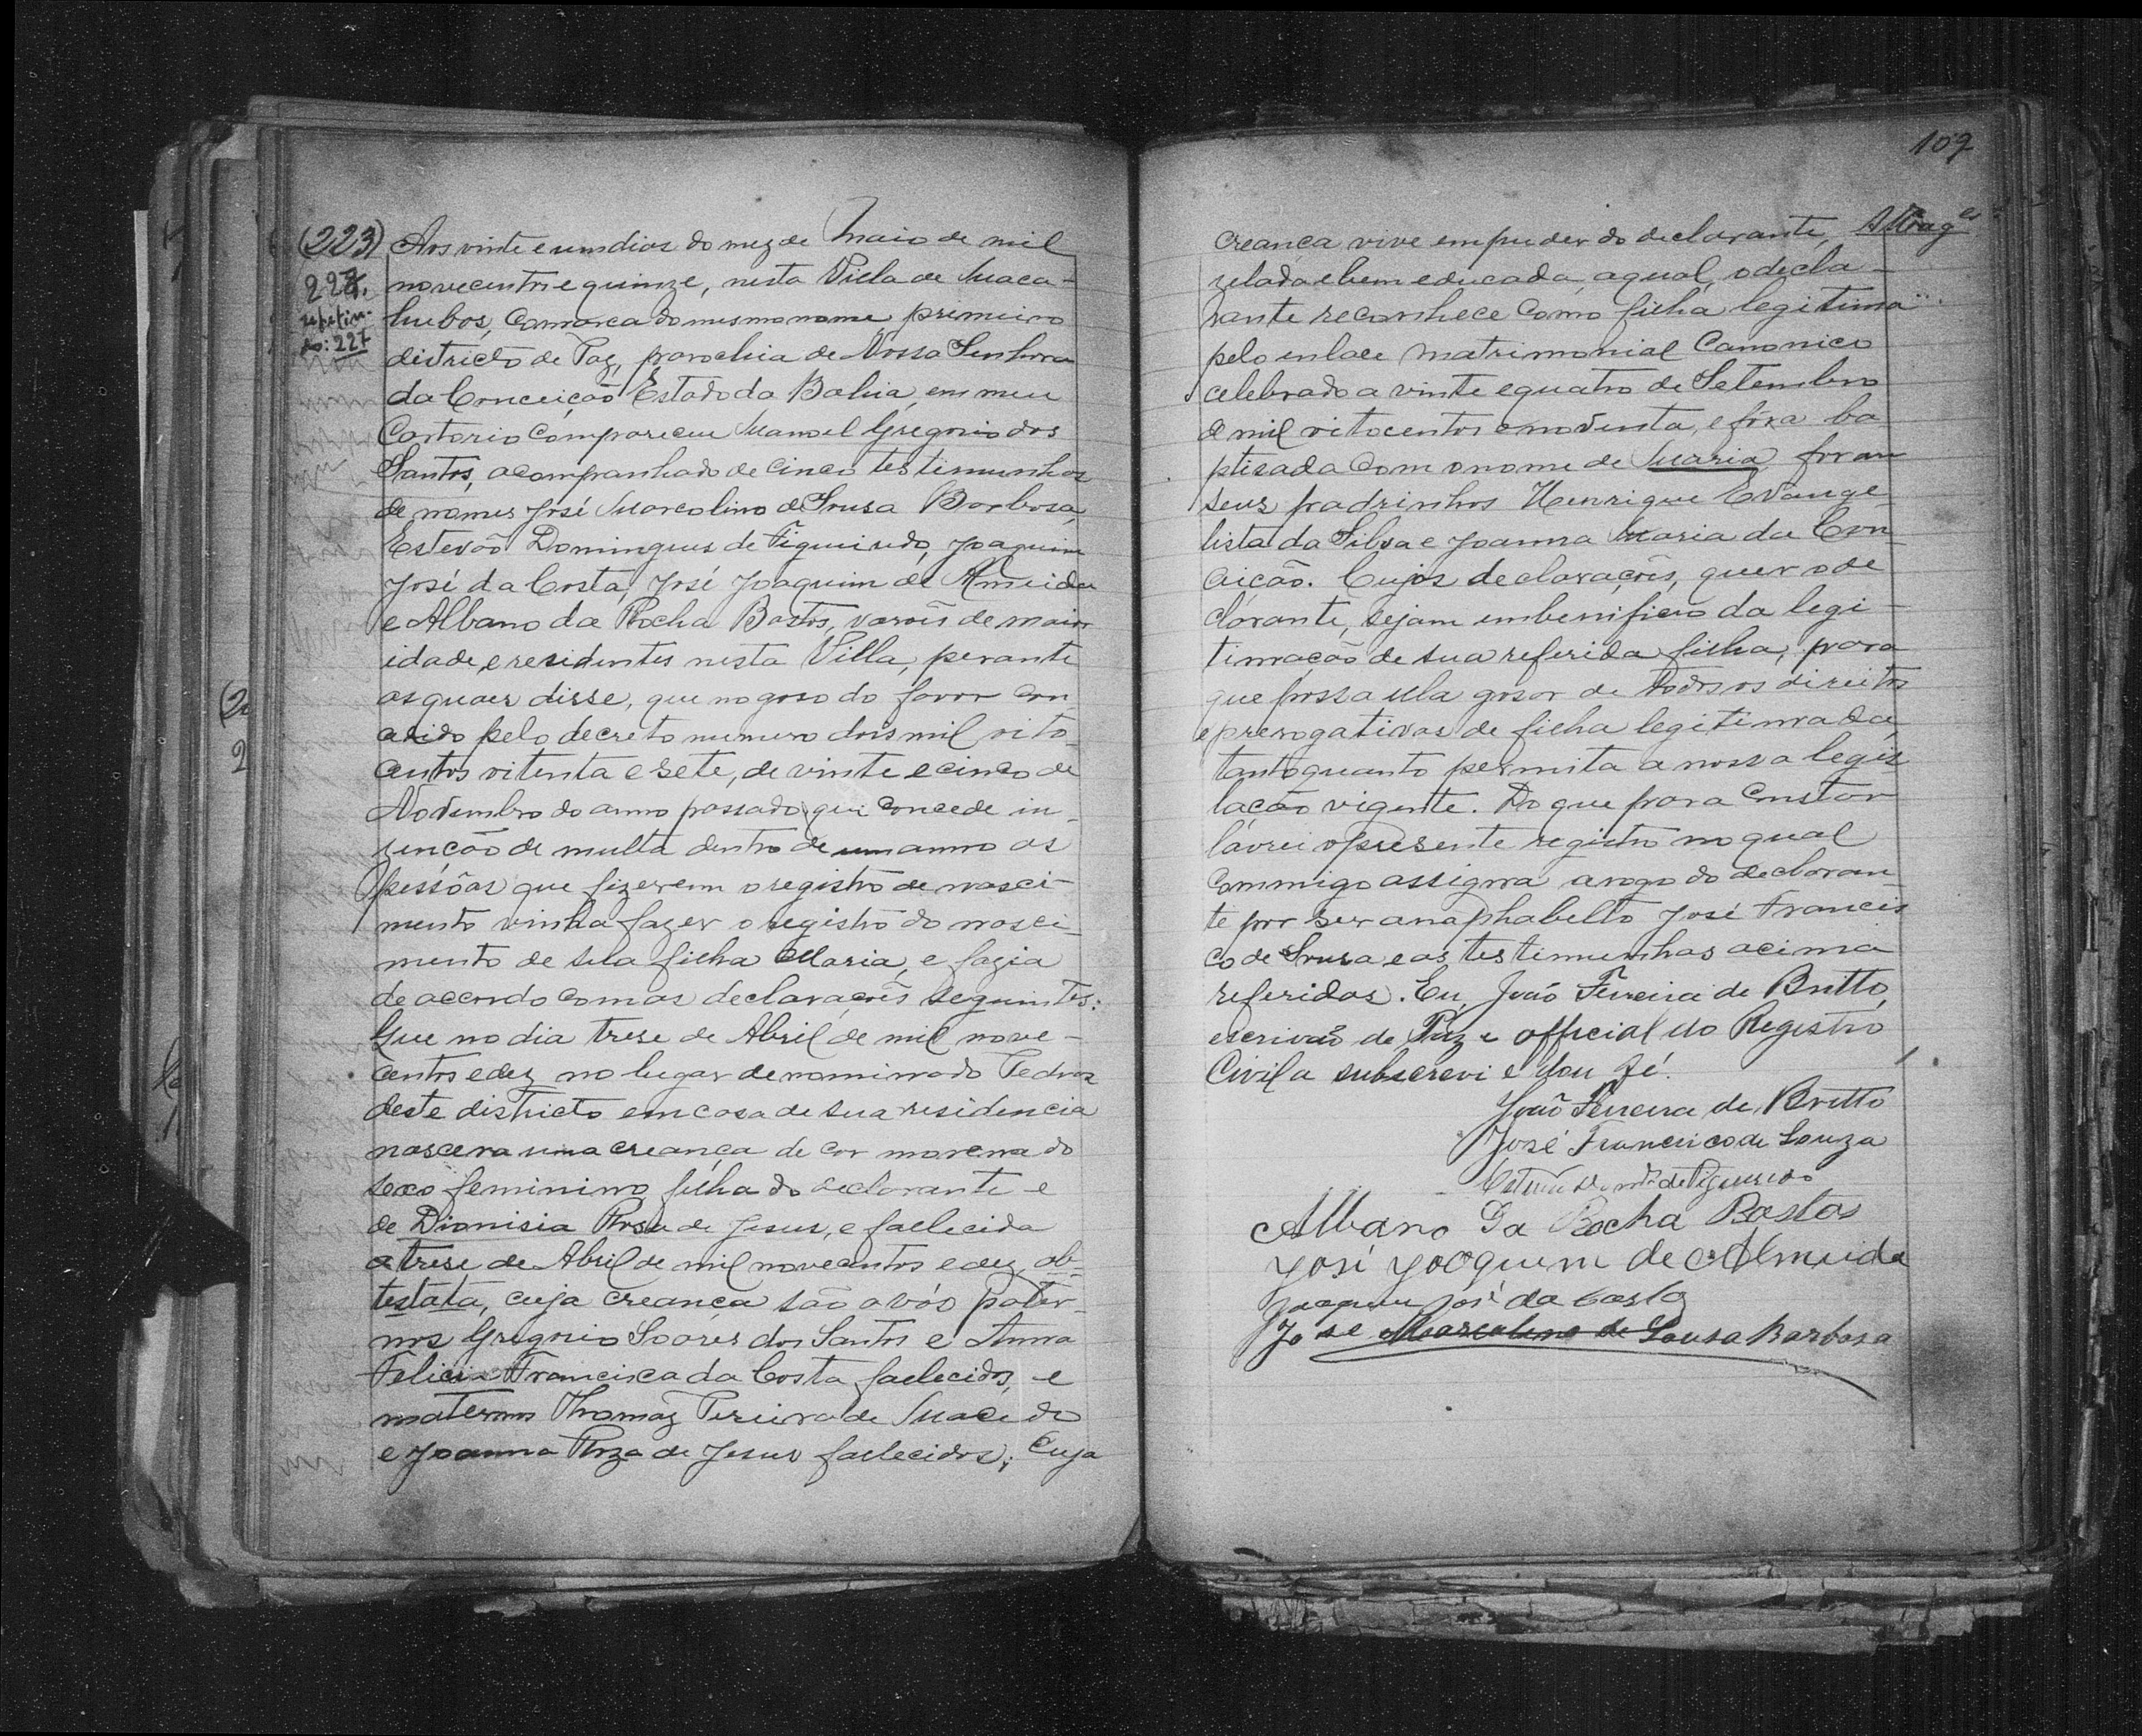 (223)
227.
repetin-
do: 227
Aos vinte e um dias do mez de Maio de mil
novecentos e quinze, nesta Villa de Maca-
hubas, Comarca do mesmo nome, primeiro
districto de Paz, parochia de Nossa Senhora
da Conceição Estado da Bahia, em meu
Cartorio compareceu Manoel Gregorio dos
Santos, acompanhado de cinco testimunhas
de nomes José Marcolino de Sousa Barbosa,
Estevão Domingues de Figueiredo, Joaquim
José da Costa, José Joaquim de Almeida
e Albano da Rocha Bastos, varões de maior
idade, e residentes nesta Villa, perante
as quaes disse, que no goso do favor con
cedido pelo decreto numero dois mil oito
centos oitenta e sete, de vinte e cinco de
Novembro do anno passado, que concede in-
senção de multa dentro de um anno as
pessôas que fizerem o registro de nasci-
mento vinha fazer o registro do nasci-
mento de sua filha Maria, e fazia
de accordo com as declarações seguintes:
Que no dia trese de Abril de mil nove-
centos e dez no lugar denominado Pedras
deste districto em casa de sua residencia
nascera uma creança de cor morena do
sexo feminino filha do declarante e
de Dionisia Rosa de Jesus, e fallecida
a trese de Abril de mil novecentos e dez, ab-
testata, cuja creança são avós pater-
nos Gregorio Soares dos Santos e Anna
Felicia Francisca da Costa fallecidos, e
maternos Thomaz Pereira de Macedo
e Joanna Roza de Jesus fallecidos; Cuja
109
creança vive em puder do declarante,
zelada e bem educada, a qual, o decla-
rante reconhece como filha legitima
pelo enlace matrimonial Canonico
celebrado a vinte e quatro de Setembro
de mil oitocentos e noventa, e fora ba
ptisada com o nome de Maria, foram
seus padrinhos Henrique Evange-
lista da Silva e Joanna Maria da Con
ceição. Cujas declarações, quer o de
clarante, sejam em benificio da legi-
timação de sua referida filha, para
que possa ella gosar de todos os direitos
e prerogativas de filha legitimada,
tanto quanto permita a nossa legis
lação vigente. Do que para constar
lavrei o presente registro no qual
commigo assigna a rogo do declaran-
te por ser anaphabetto José Francis
co de Sousa e as testimunhas acima
referidas. Eu, João Ferreira de Britto,
escrivão de Paz e official do Registro
Civil a subscrevi e dou fé.
João Ferreira de Britto
José Francisco de Souza
Estevão de Figueiredo
Albano Da Rocha Bastos
José Joaquim de Almeida
Joaquim José da Costa
José Marcolino de Sousa Barbosa